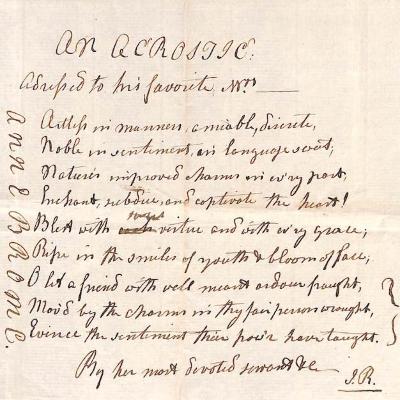 AN ACROSTIC.
Adressed to his favorite Mrs
Artless in manners, amiable, discrete,
Noble in sentiment, in language sweet,
Natures improved charms in ev'ry part,
Enchant, subdue, and captivate the heart!
Blest with sweet virtue and with ev'ry grace;
Ripe in the smiles of youth & bloom of face;
O let a friend with well meant ardour fraught,
Mov'd by the charms in thy fair person wrought,
Evince the sentiment their pow'r have taught.
By her most devoted servant &c
J.R.
ANNE BROME.